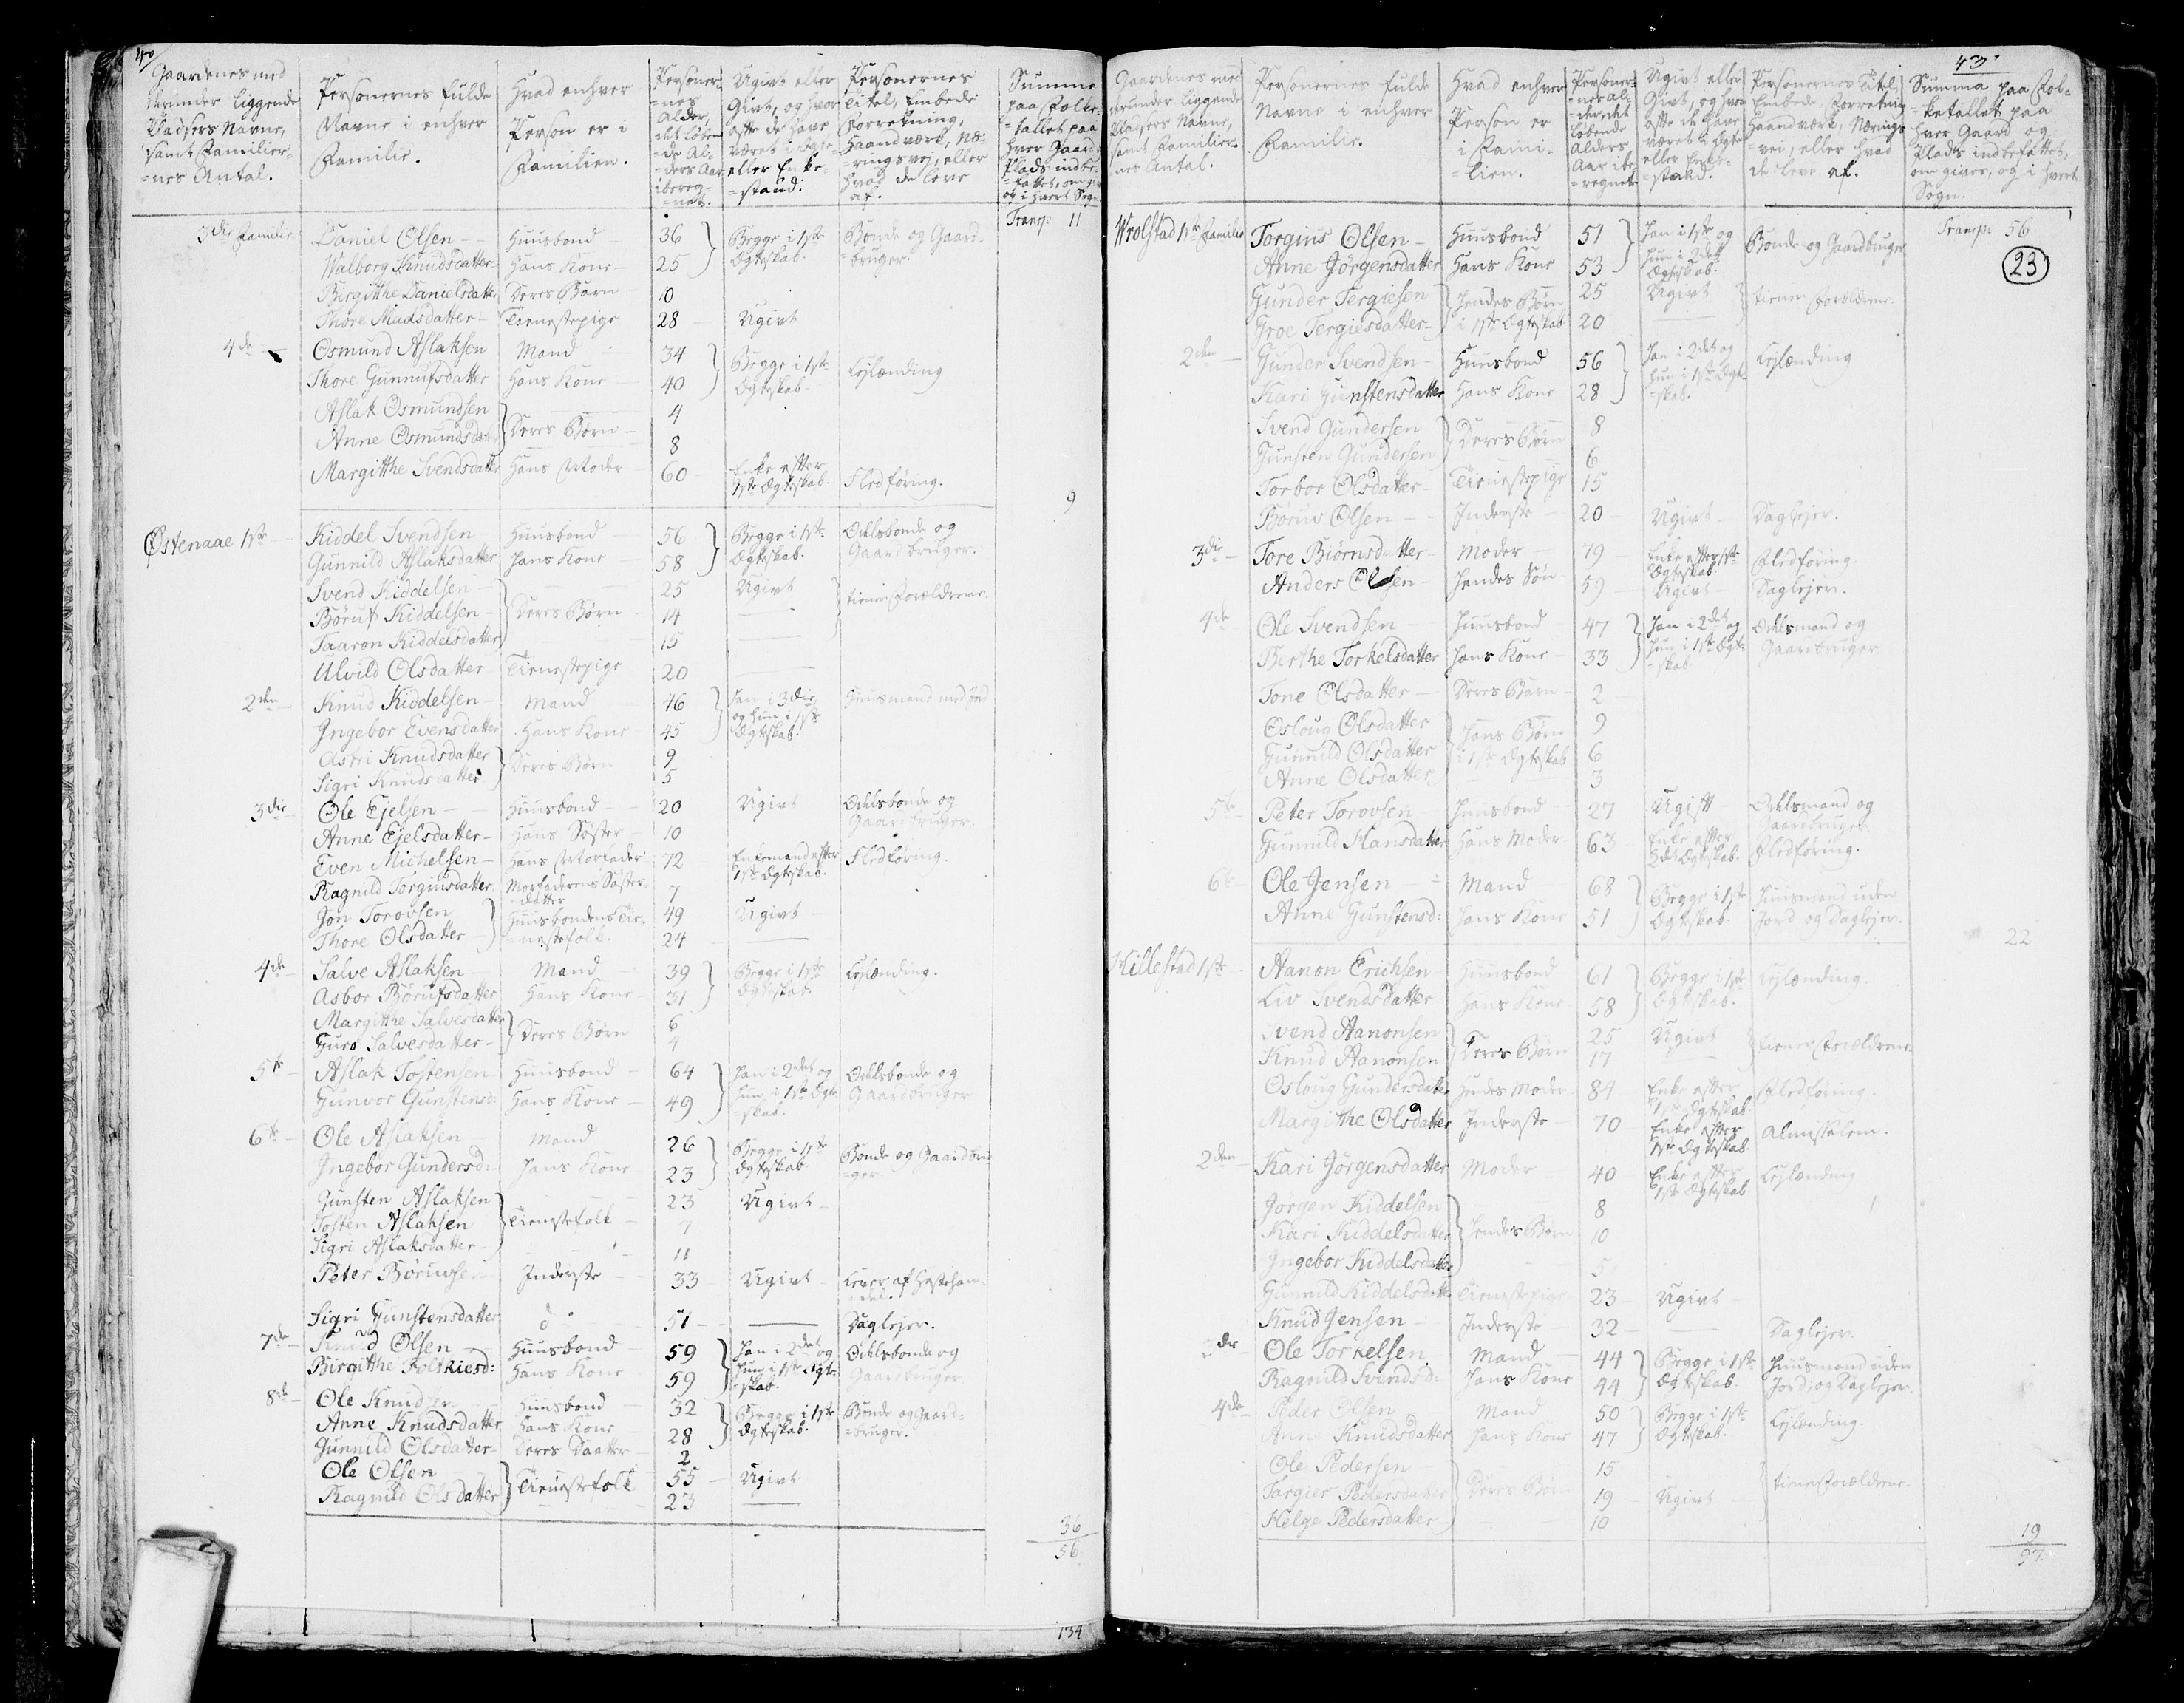 40
Gaardenes med
herunder liggende
Pladsers Navne,
samt Familier-
=nes Antal.
Personernes fulde
Navne i enhver
Familie.
Hvad enhver
Person er i
Familien.
Personer-
=nes
Alder,
det løben-
=de Al-
=ders Aar
ibereg-
=net.
Ugivt eller
Givt, og hvor
ofte de have
været i Ægte-
eller Enke-
=stand.
Personernes
Titel, Embede
Forretning,
Haandværk, Næ-
=ringsvej, eller
hvad de leve
af.
Summa
paa Folke-
=tallet paa
hver Gaard
Plads indbe-
=fattet, om
og i hvert Sogn
Transp 11
3die Familie Daniel Olsen Huusbond 36 Begge i 1ste Bonde og Gaard-
Walborg Knudsdatter Hans Kone 25 Ægteskab. =bruger.
Birgitthe Danielsdatter Deres Barn 10
Thore Madsdatter Tienestepige 28 Ugivt
4de Osmund Aslaksen Mand 34 Begge i 1ste Lejlænding
Thore Gunnufsdatter Hans Kone 40 Ægteskab.
Aslak Osmundsen Deres Børn 4
Anne Osmundsdatter 8
Margitthe Svendsdatter Hans Moder 60 Enke efter 1ste Ægteskab. Fledføring.
9
Østenaae 1ste Kiddel Svendsen Huusbond 56 Begge i 1ste Odelsbonde og
Gunnild Aslaksdatter Hans Kone 58 Ægteskab. Gaardbruger.
Svend Kiddelsen Deres Børn 25 Ugivt tiener Forældrene.
Børuf Kiddelsen 14
Taaron Kiddelsdatter 15
Ulvild Olsdatter Tienestepige 20
2den Knud Kiddelsen Mand 46 Han i 3die og hun i 1ste Ægteskab. Huusmand med Jord
Ingebor Evensdatter Hans Kone 45
Astri Knudsdatter Deres Børn 9
Sigri Knudsdatter 5
3die Ole Ejelsen Huusbond 20 Ugivt Odelsbonde og Gaardbruger.
Anne Ejelsdatter Hans Søster 10
Even Michelsen Hans Morfader 72 Enkemand efter 1ste Ægteskab. Fledføring.
Ragnild Torgiusdatter Morfaderens Søster datter 7
Jon Torovsen Huusbondens Tie- 49 Ugivt
Thore Olsdatter =nestefolk. 24
4de Salve Aslaksen Mand 39 Begge i 1ste Lejlænding.
Asbor Børufsdatter Hans Kone 31 Ægteskab.
Margitthe Salvesdatter Deres Børn 6
Guro Salvesdatter 4
5te Aslak Tostensen Huusbond 64 Han i 2det og Odelsbonde og
Gunvor Gunstensd: Hans Kone 49 hun i 1ste Ægte-
=skab. Gaardbruger
6te Ole Aslaksen Mand 26 Begge i 1ste Bonde og Gaardbru-
Ingebor Gundersd: Hans Kone 23 Ægteskab. =ger.
Gunsten Aslaksen Tienestefolk 23 Ugivt
Tosten Aslaksen 7
Sigri Aslaksdatter 11
Peter Børuvsen Inderste 33 Ugivt Lever af Hestehan-
=del.
Sigri Gunstensdatter do 51 Daglejer.
7de Knud Olsen Huusbond 59 Han i 2det og Odelsbonde og
Birgitthe Folkiesd: Hans Kone 59 hun i 1ste Ægte-
=skab. Gaardbruger
8de Ole Knudsen Huusbond 32 Begge i 1ste Bonde og Gaard-
Anne Knudsdatter Hans Kone 28 Ægteskab. =bruger.
Gunnild Olsdatter Deres Daatter 2
Ole Olsen Tienestefolk 55 Ugivt
Ragnild Olsdatter 23
36
56
134
43
Gaardenes med
herunder liggende
Pladsers Navne,
samt Familier-
nes Antal.
Personernes fulde
Navne i enhver
Familie.
Hvad enhver
Person er
i Fami-
=lien.
Personer-
=nes Al-
=der, det
løbende
Alders
Aar ibe-
=regnet
Ugivt eller
Givt, og hvor
ofte de have
været i Ægte
eller Enke-
=stand.
Personernes Titel,
Embede, Forretning
Haandværk, Nærings-
=vei, eller hvad
de leve af.
Summa paa Fol-
=ketallet paa
hver Gaard og
Plads indbefattet,
om gives, og i hvert
Sogn.
Transp: 56
23
Wrolstad 1ste Familie Torgius Olsen Huusbond 51 Han i 1ste og Bonde og Gaardbruger
Anne Jørgensdatter Hans Kone 53 hun i 2det
Ægteskab.
Gunder Tergiesen Hendes Børn 25 Ugivt tiener Forældrene.
Groe Tergiesdatter i 1ste Ægteskab 20
2den Gunder Svendsen Huusbond 56 Han i 2det og Lejlænding
Kari Gunstensdatter Hans Kone 28 hun i 1ste Ægte-
=skab.
Svend Gundersen Deres Børn 8
Gunsten Gundersen 6
Torbor Olsdatter Tienestepige 15
Børuv Olsen Inderste 20 Ugivt Daglejer.
3die Tore Biørnsdatter Moder 79 Enke efter 1ste Ægteskab. Fledføring.
Anders Olsen Hendes Søn 59 Ugivt Daglejer.
4de Ole Svendsen Huusbond 47 Han i 2det og Odelsmand og
Berthe Torkelsdatter Hans Kone 33 hun i 1ste Ægte-
=skab Gaardbruger.
Tone Olsdatter Deres Barn 2
Osloug Olsdatter Hans Børn 9
Gunnild Olsdatter i 1ste Ægteskab 6
Anne Olsdatter 3
5te Peter Torovsen Huusbond 27 Ugift Odelsmand og Gaardbruger
Gunnild Hansdatter Hans Moder 63 Enke efter 2det Ægteskab. Fledføring.
6te Ole Jensen Mand 68 Begge i 1ste Huusmand uden
Anne Gunstensd: Hans Kone 51 Ægteskab. Jord og Daglejer.
22
Hillestad 1ste Aanon Erichsen Huusbond 61 Begge i 1ste Lejlænding.
Liv Svendsdatter Hans Kone 58 Ægteskab.
Svend Aanonsen Deres Børn 25 Ugivt tiener Forældrene
Knud Aanonsen 17
Osloug Gundersdatter Hendes Moder 84 Enke efter 1ste Ægteskab. Fledføring.
Margithe Olsdatter Inderste 70 Enke efter 1ste Ægteskab. Almisselem.
2den Kari Jørgensdatter Moder 40 Enke efter 1ste Ægteskab Lejlænding
Jørgen Kiddelsen Hendes Børn 8
Kari Kiddelsdatter 10
Ingebor Kiddelsdatter 5
Gunnild Kiddelsdatter Tienestepige 23 Ugivt
Knud Jensen Inderste 32 Daglejer.
3die Ole Torkelsen Mand 44 Begge i 1ste Huusmand uden
Ragnild Svendsd: Hans Kone 44 Ægteskab. Jord, og Daglejer.
4de Peder Olsen Mand 50 Begge i 1ste Lejlænding.
Anne Knudsdatter Hans Kone 47 Ægteskab.
Ole Pedersen Deres Børn 15 tiener Forældrene.
Targier Pedersdatter 19 Ugivt
Helge Pedersdatter 10
19
97